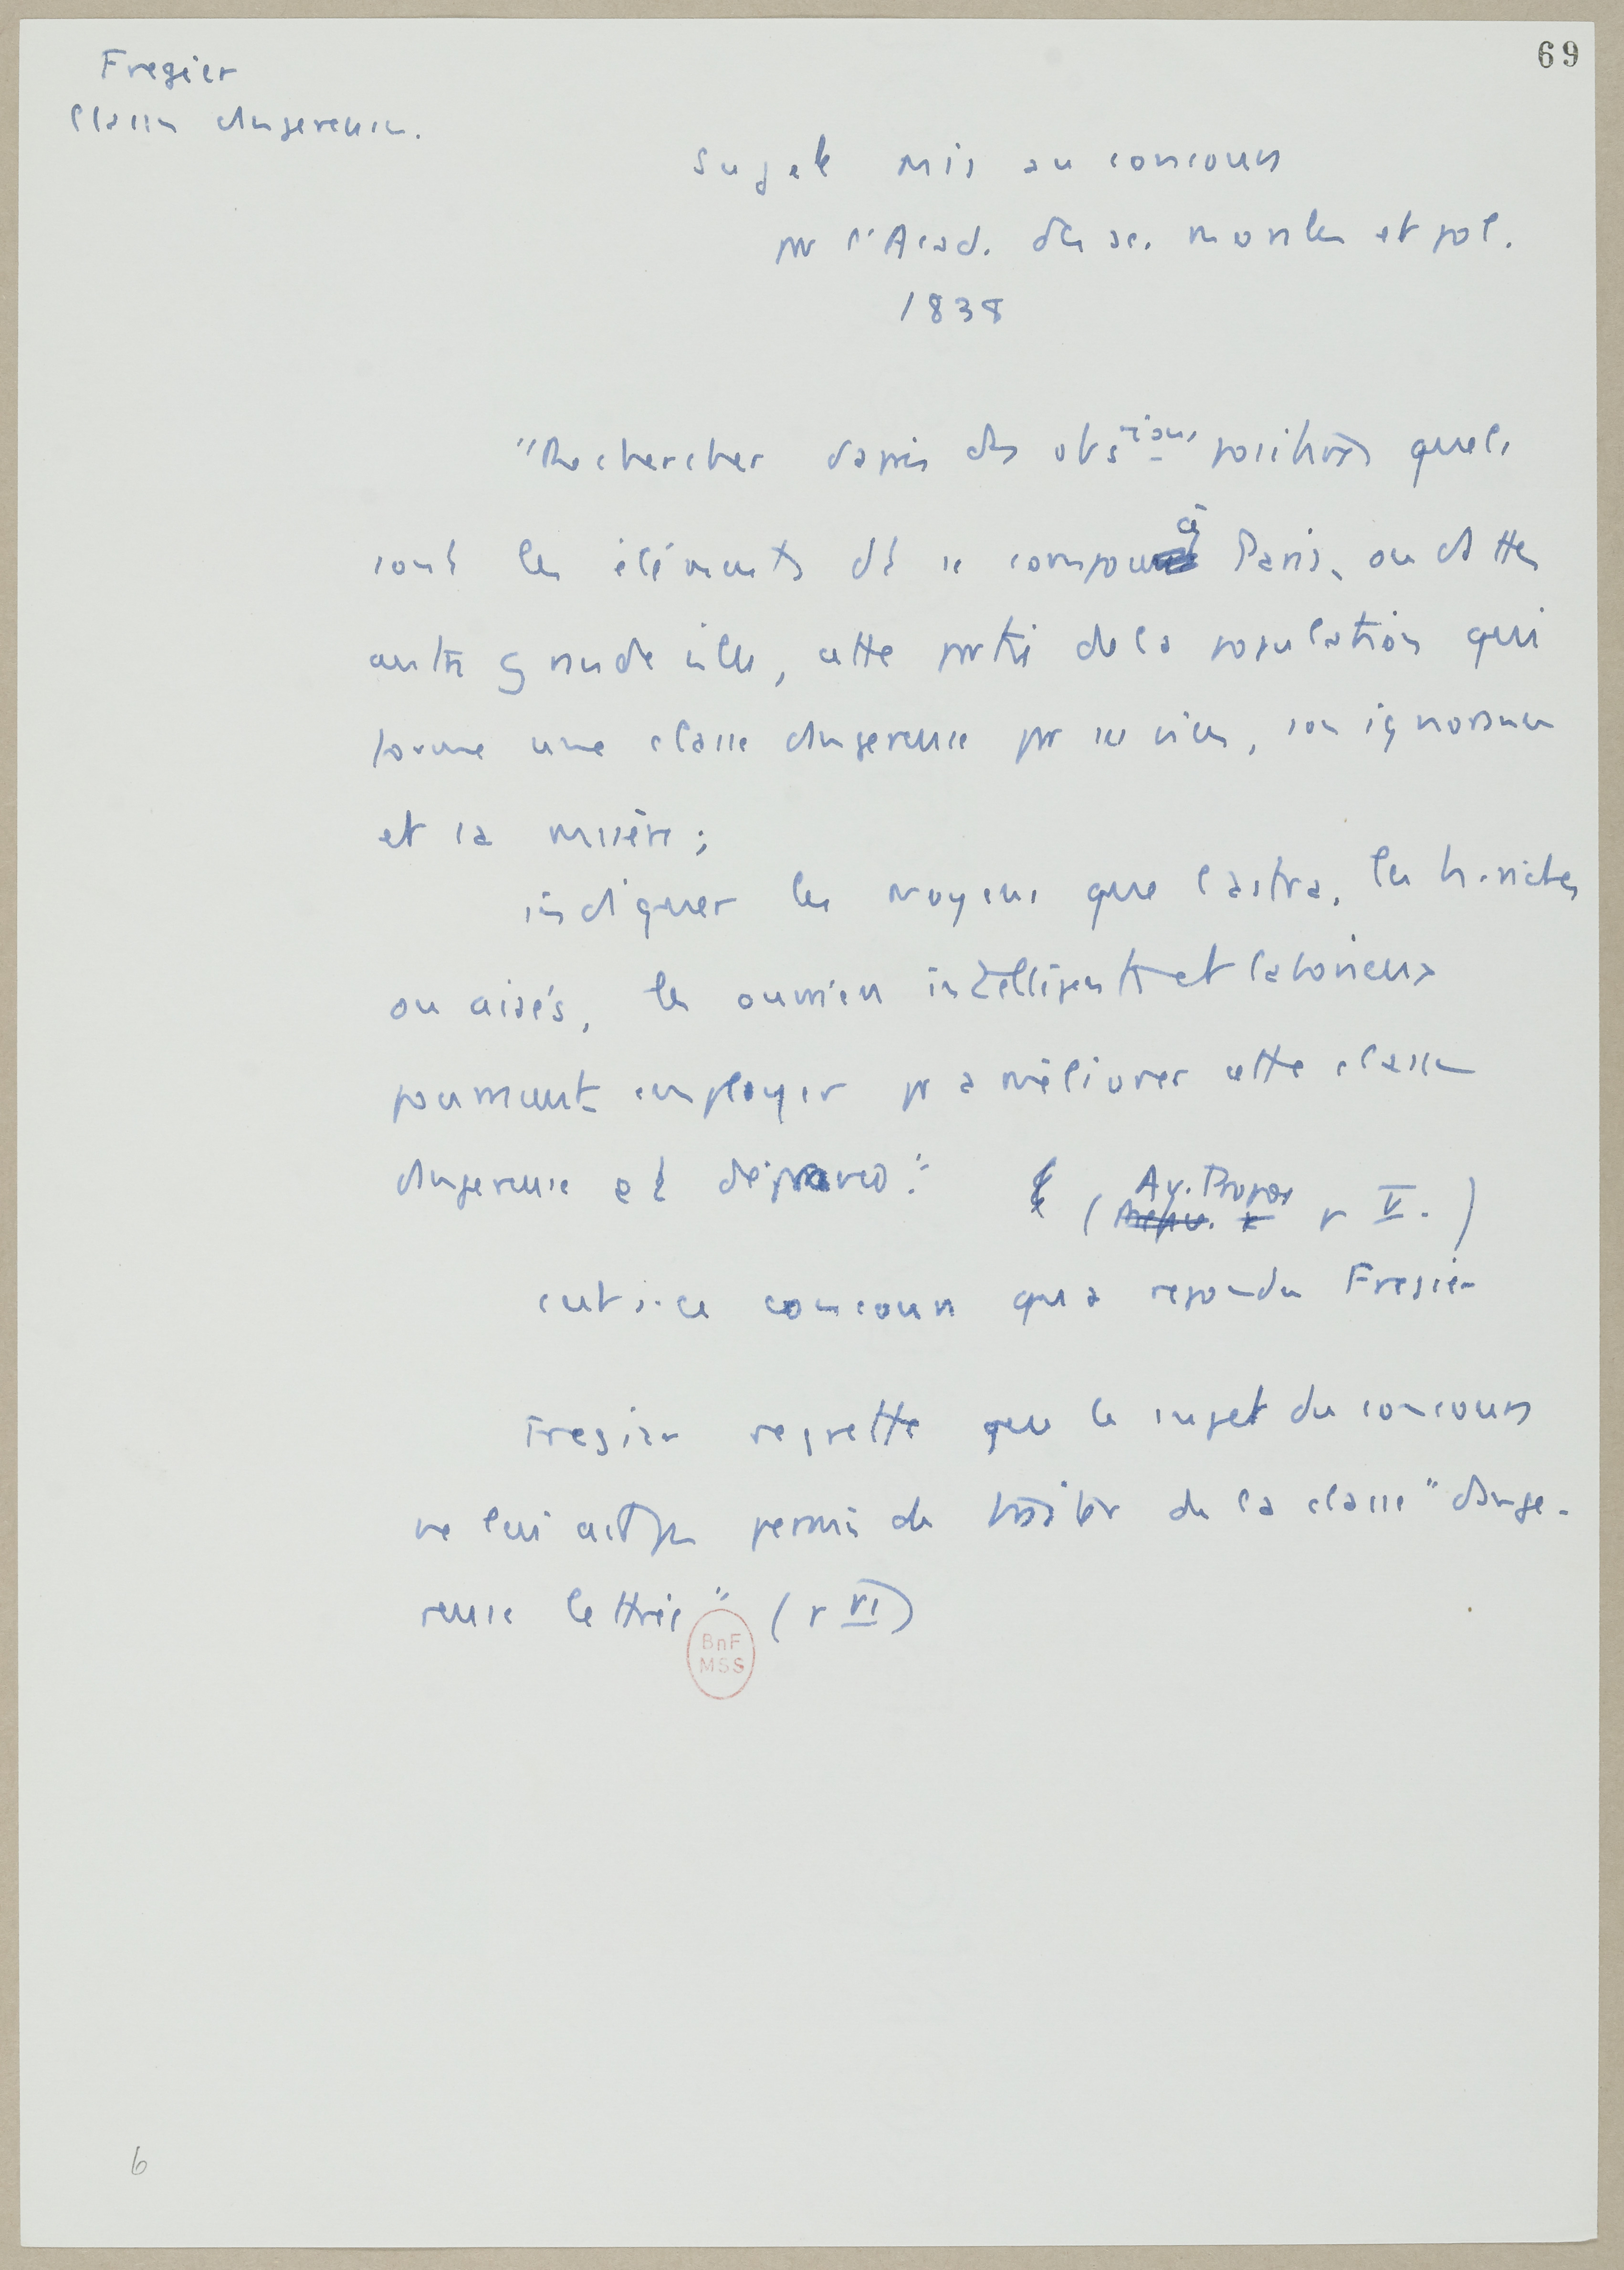 69
Fregier
Classes dangereuses.
Sujet mis au concours
par l'Acad. des sc. morales et pol.
1838
"Rechercher d'après des obstions positives quels
sont les éléments dt se compose à Paris, ou ds tte
autre grande ville, cette partie de la population qui
forme une classe dangereuse par ses vices, son ignorance
et sa misère ;
indiquer les moyens que l'adtra, les h. riches
ou aisés, les ouvriers intelligents et laborieux
pourraient employer pr améliorer cette classe
dangereuse et dépravée".
(Av. Propos p V.)
c'est à ce concours qu'a répondu Fregier
Fregier regrette que le sujet du concours
ne lui ait pas permis de traiter de la classe "dange-
reuse lettrée" (p VI)
BnF
MSS
6